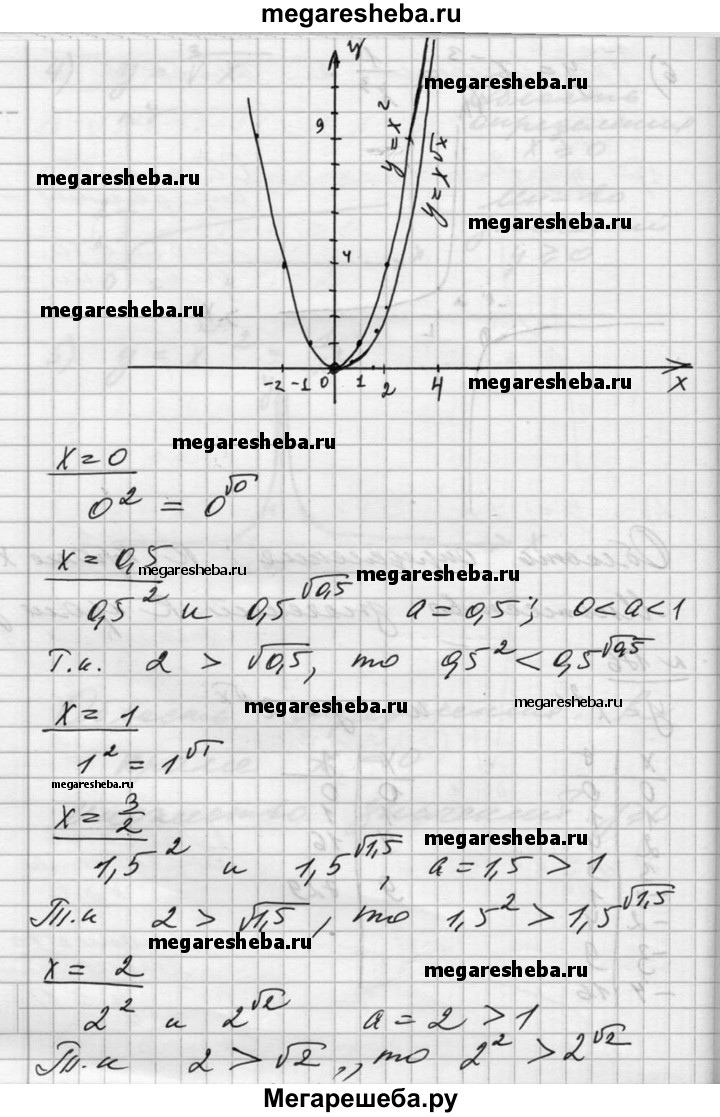 megaresheba.ru
y
megaresheba.ru
9
y = x²
y = x√x
megaresheba.ru
megaresheba.ru
4
megaresheba.ru
-2 -1 0 1 2 4 x
megaresheba.ru
megaresheba.ru
x = 0
0² = 0^√0
x = 0,5
megaresheba.ru
megaresheba.ru
0,5² и 0,5^√0,5 a = 0,5; 0 < a < 1
Т.к. 2 > √0,5, то 0,5² < 0,5^√0,5
x = 1
megaresheba.ru
megaresheba.ru
1² = 1^√1
megaresheba.ru
x = 3/2
megaresheba.ru
1,5² и 1,5^√1,5, a = 1,5 > 1
Т.к 2 > √1,5, то 1,5² > 1,5^√1,5
megaresheba.ru
x = 2
megaresheba.ru
2² и 2^√2 a = 2 > 1
Т.к 2 > √2,, то 2² > 2^√2
Мегарешеба.ру